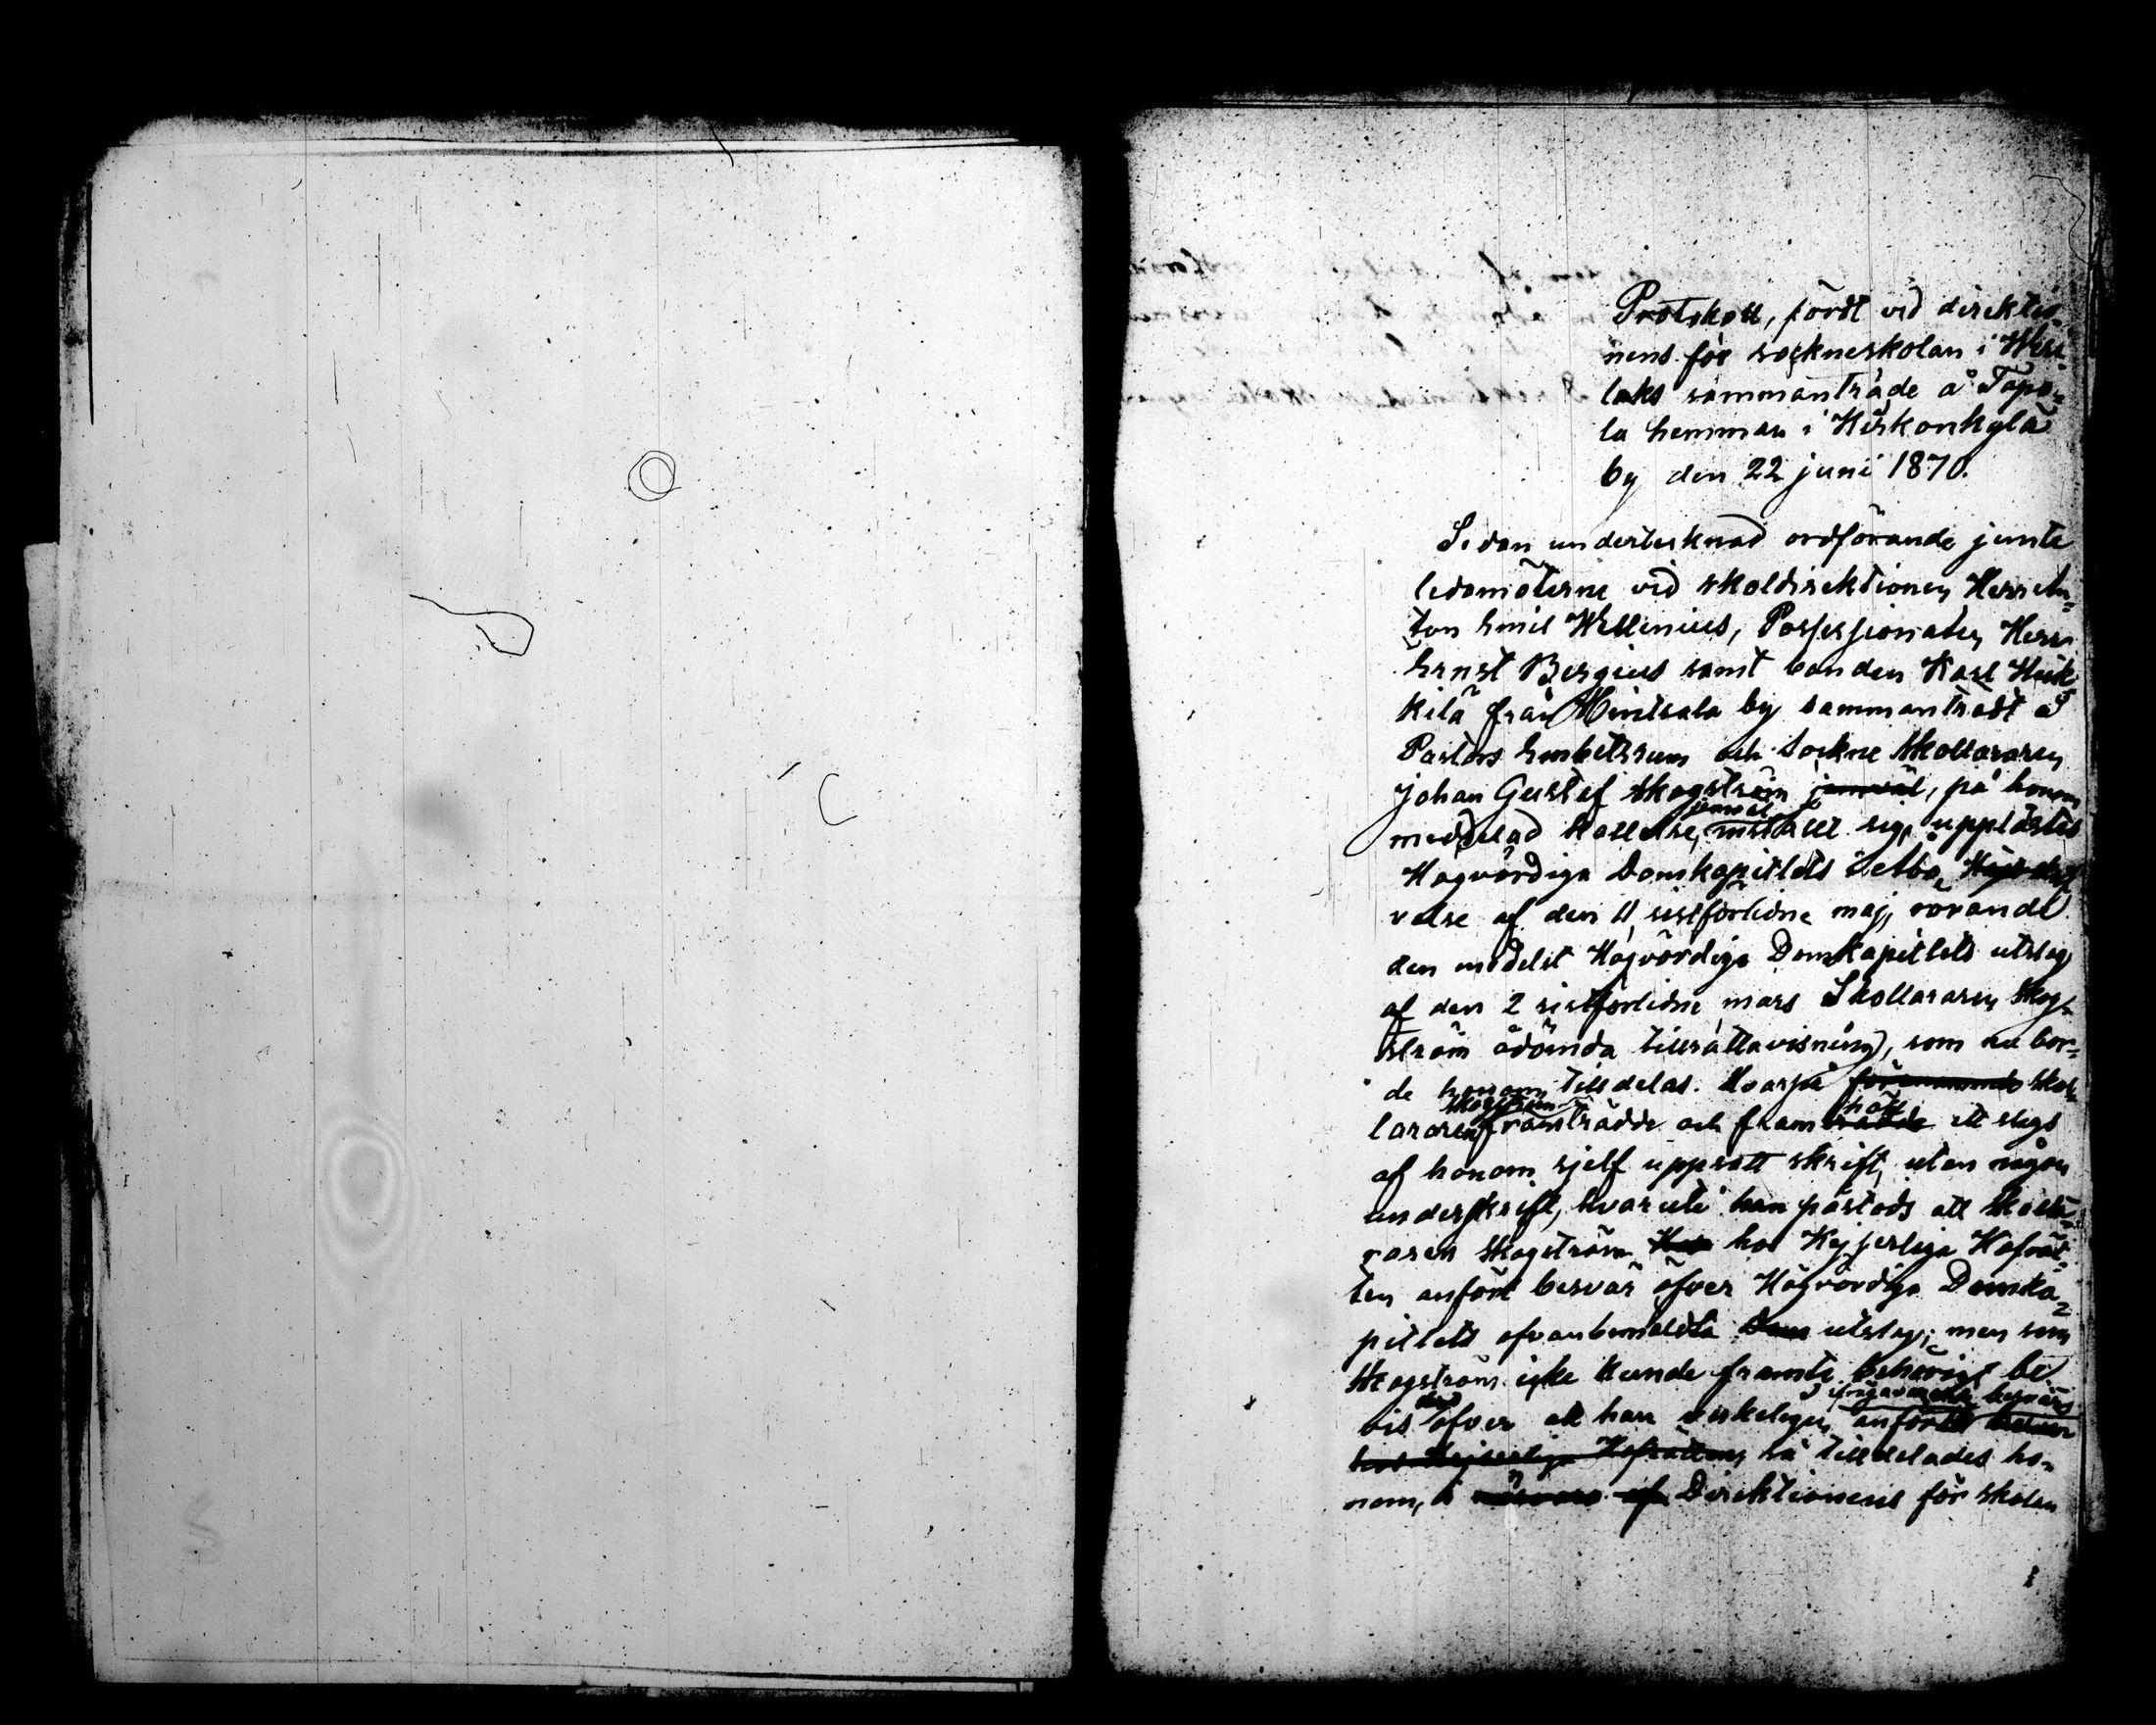 Protokoll, fördt vid direktio-
nens för sockneskolan i Wir-
laks sammanträde å Tapo-
la hemman i Kirkonkylä
by den 22 juni 1870.
Sedan undertecknad ordförande jemte
ledamöterne vid skoldirektionen Herr An-
ton Emil Wellenius, Possessionaten Herr
Ernst Bergius samt bonden Karl Heik-
kilä från Hintsala by sammanträdt å
Pastors Embetsrum och Sockne Skolläraren
Johan Gustaf Skogström jemväl, på honom
jemväl
meddelad kallelse, inställt sig, upplästes
Högvördiga Domkapitlets i Åbo
velse af den 11 sistförlidne maj, rörande
den medelst Högvördiga Domkapitlets utslag
af den 2 sistförlidne mars Skolläraren Skog-
ström ådömda tillrättavisning, som nu bor-
de honom tilldelas. Hvarpå skol-
Skogström
läraren framträdde och framträdde ett slags
höll
af honom sjelf uppsatt skrift, uten någon
underskrift, hvaruti han påstods att Skollä-
raren Skogström hos Kejserliga Hofrät-
ten anfört besvär öfver Högvördiga Domka-
pitlets ofvanbemäldta utslag; men som
Skogström icke kunde framte behörigt be-
vis öfver att han verkeligen anfört
ifrågavarande besvär
hos Kejserliga Hofrätten, så tilldelades ho-
nom, i närvaro af Direktionens för skolan